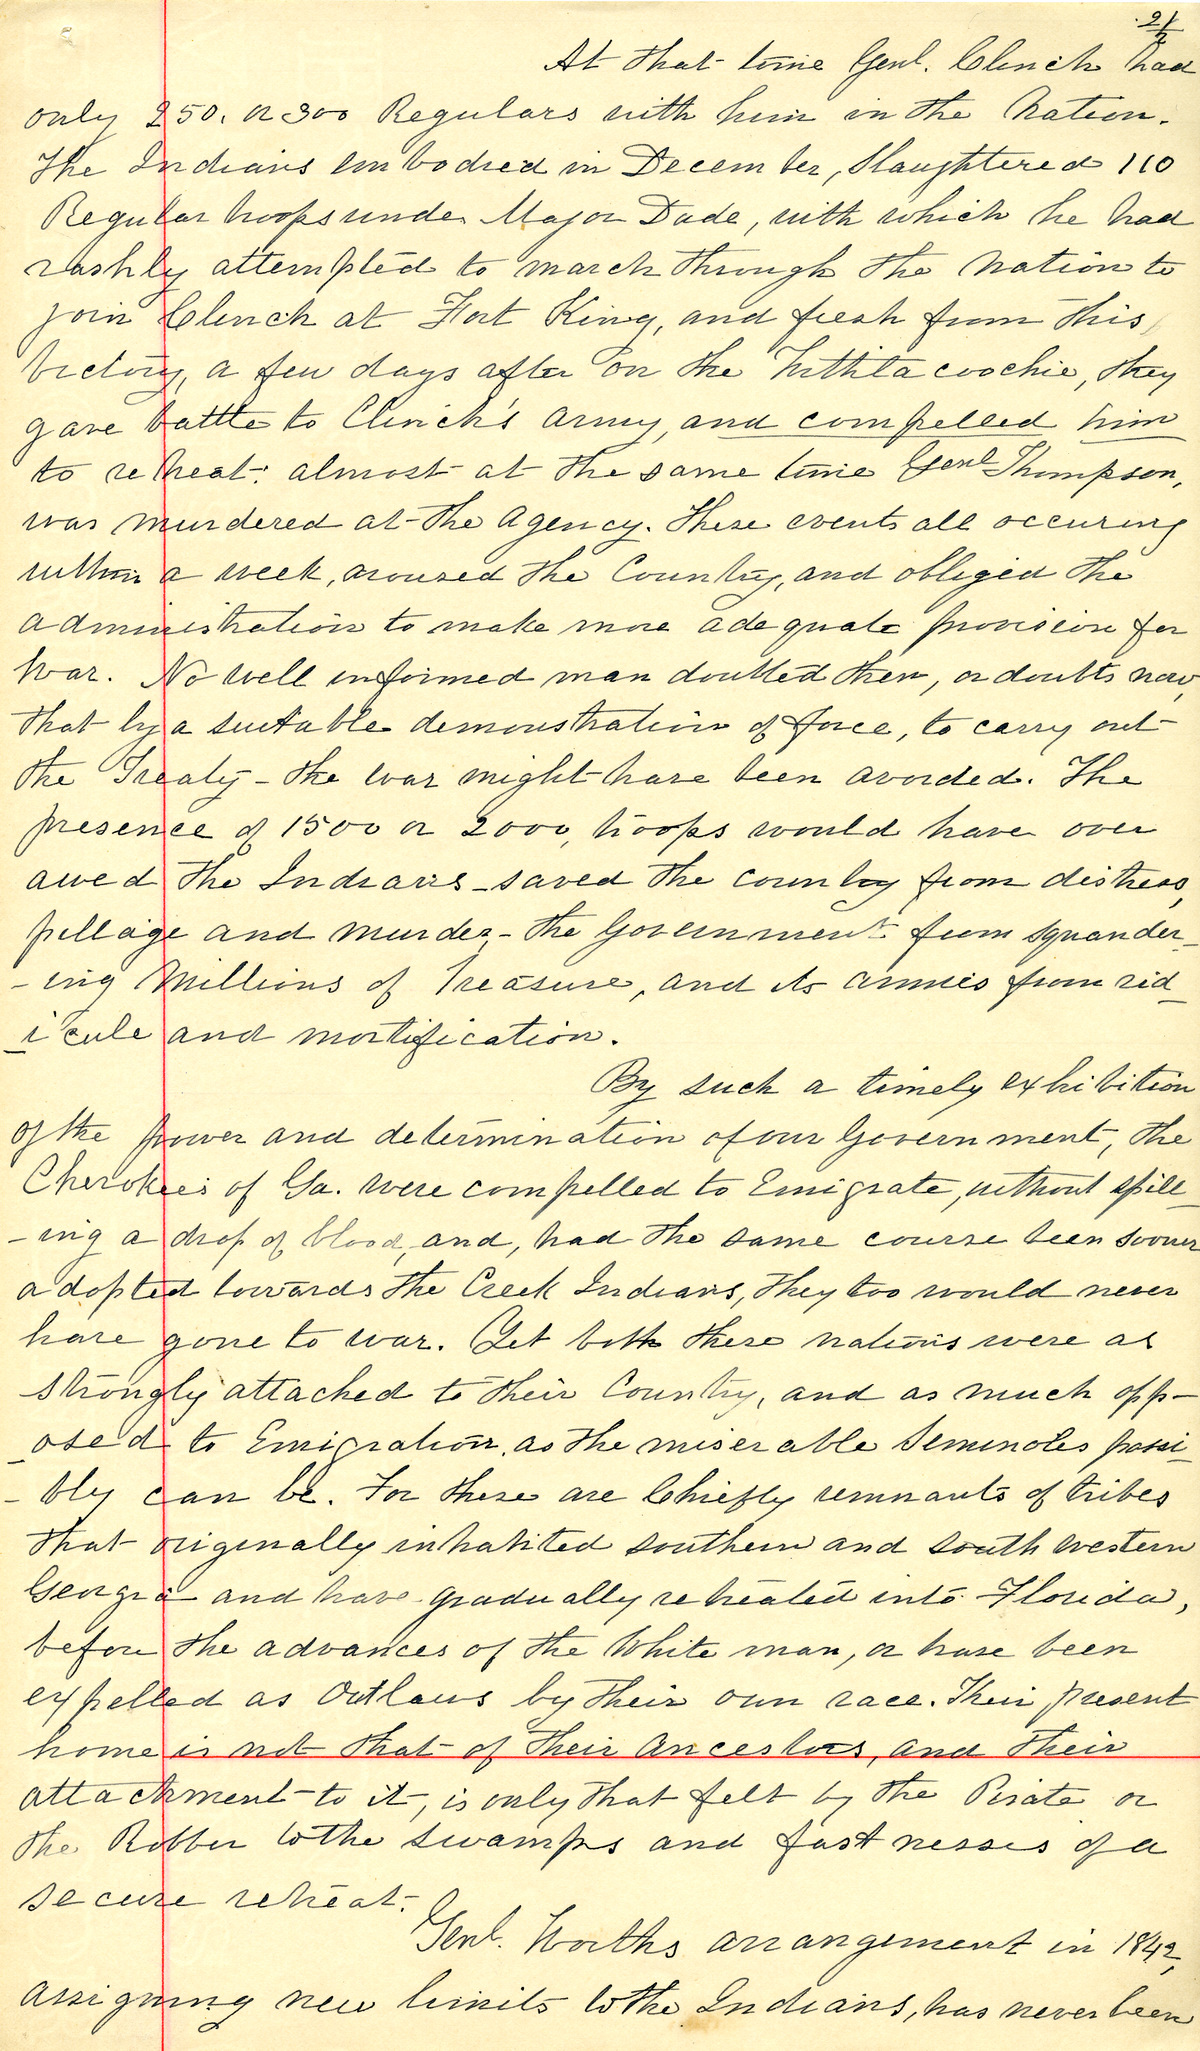 2/
At that time Genl. Clinch had
only 250. or 300 Regulars with him in the Nation.
The Indians embodied in December, Slaughtered 110
Regular troops under Major Dade, with which he had
rashly attempted to march through the Nation to
join Clinch at Fort King, and fresh from this
victory, a few days after on the Withlacoochie, they
gave battle to Clinch's army, and compelled him
to retreat: almost at the same time Genl Thompson,
was murdered at the Agency. These events all occuring
within a week, aroused the Country, and obliged the
administration to make more adequate provision for
war. No well informed man doubted then, or doubts now,
that by a suitable demonstration of force, to carry out
the Treaty - the war might have been avoided. The
presence of 1500 or 2000, troops would have over
awed the Indians - saved the country from distress,
pillage and murder - the Government from squander-
-ing Millions of Treasure, and its armies from rid-
-icule and mortification.
By such a timely exhibition
of the power and determination of our Government, the
Cherokees of Ga. were compelled to Emigrate, without spill-
-ing a drop of blood, and, had the same course been sooner
adopted towards the Creek Indians, they too would never
have gone to war. Yet both these nations were as
strongly attached to their Country, and as much opp-
-osed to Emigration, as the miserable Seminoles possi-
-bly can be. For these are Chiefly remnants of tribes
that originally inhabited southern and south western
Georgia and have gradually retreated into Florida,
before the advances of the White man, or have been
expelled as Outlaws by their own race. Their present
home is not that of their Ancestors, and their
attachment to it, is only that felt by the Pirate or
the Robber to the swamps and fastnesses of a
secure retreat.
Genl. Worths arrangement in 1842,
assigning new limits to the Indians, has never been